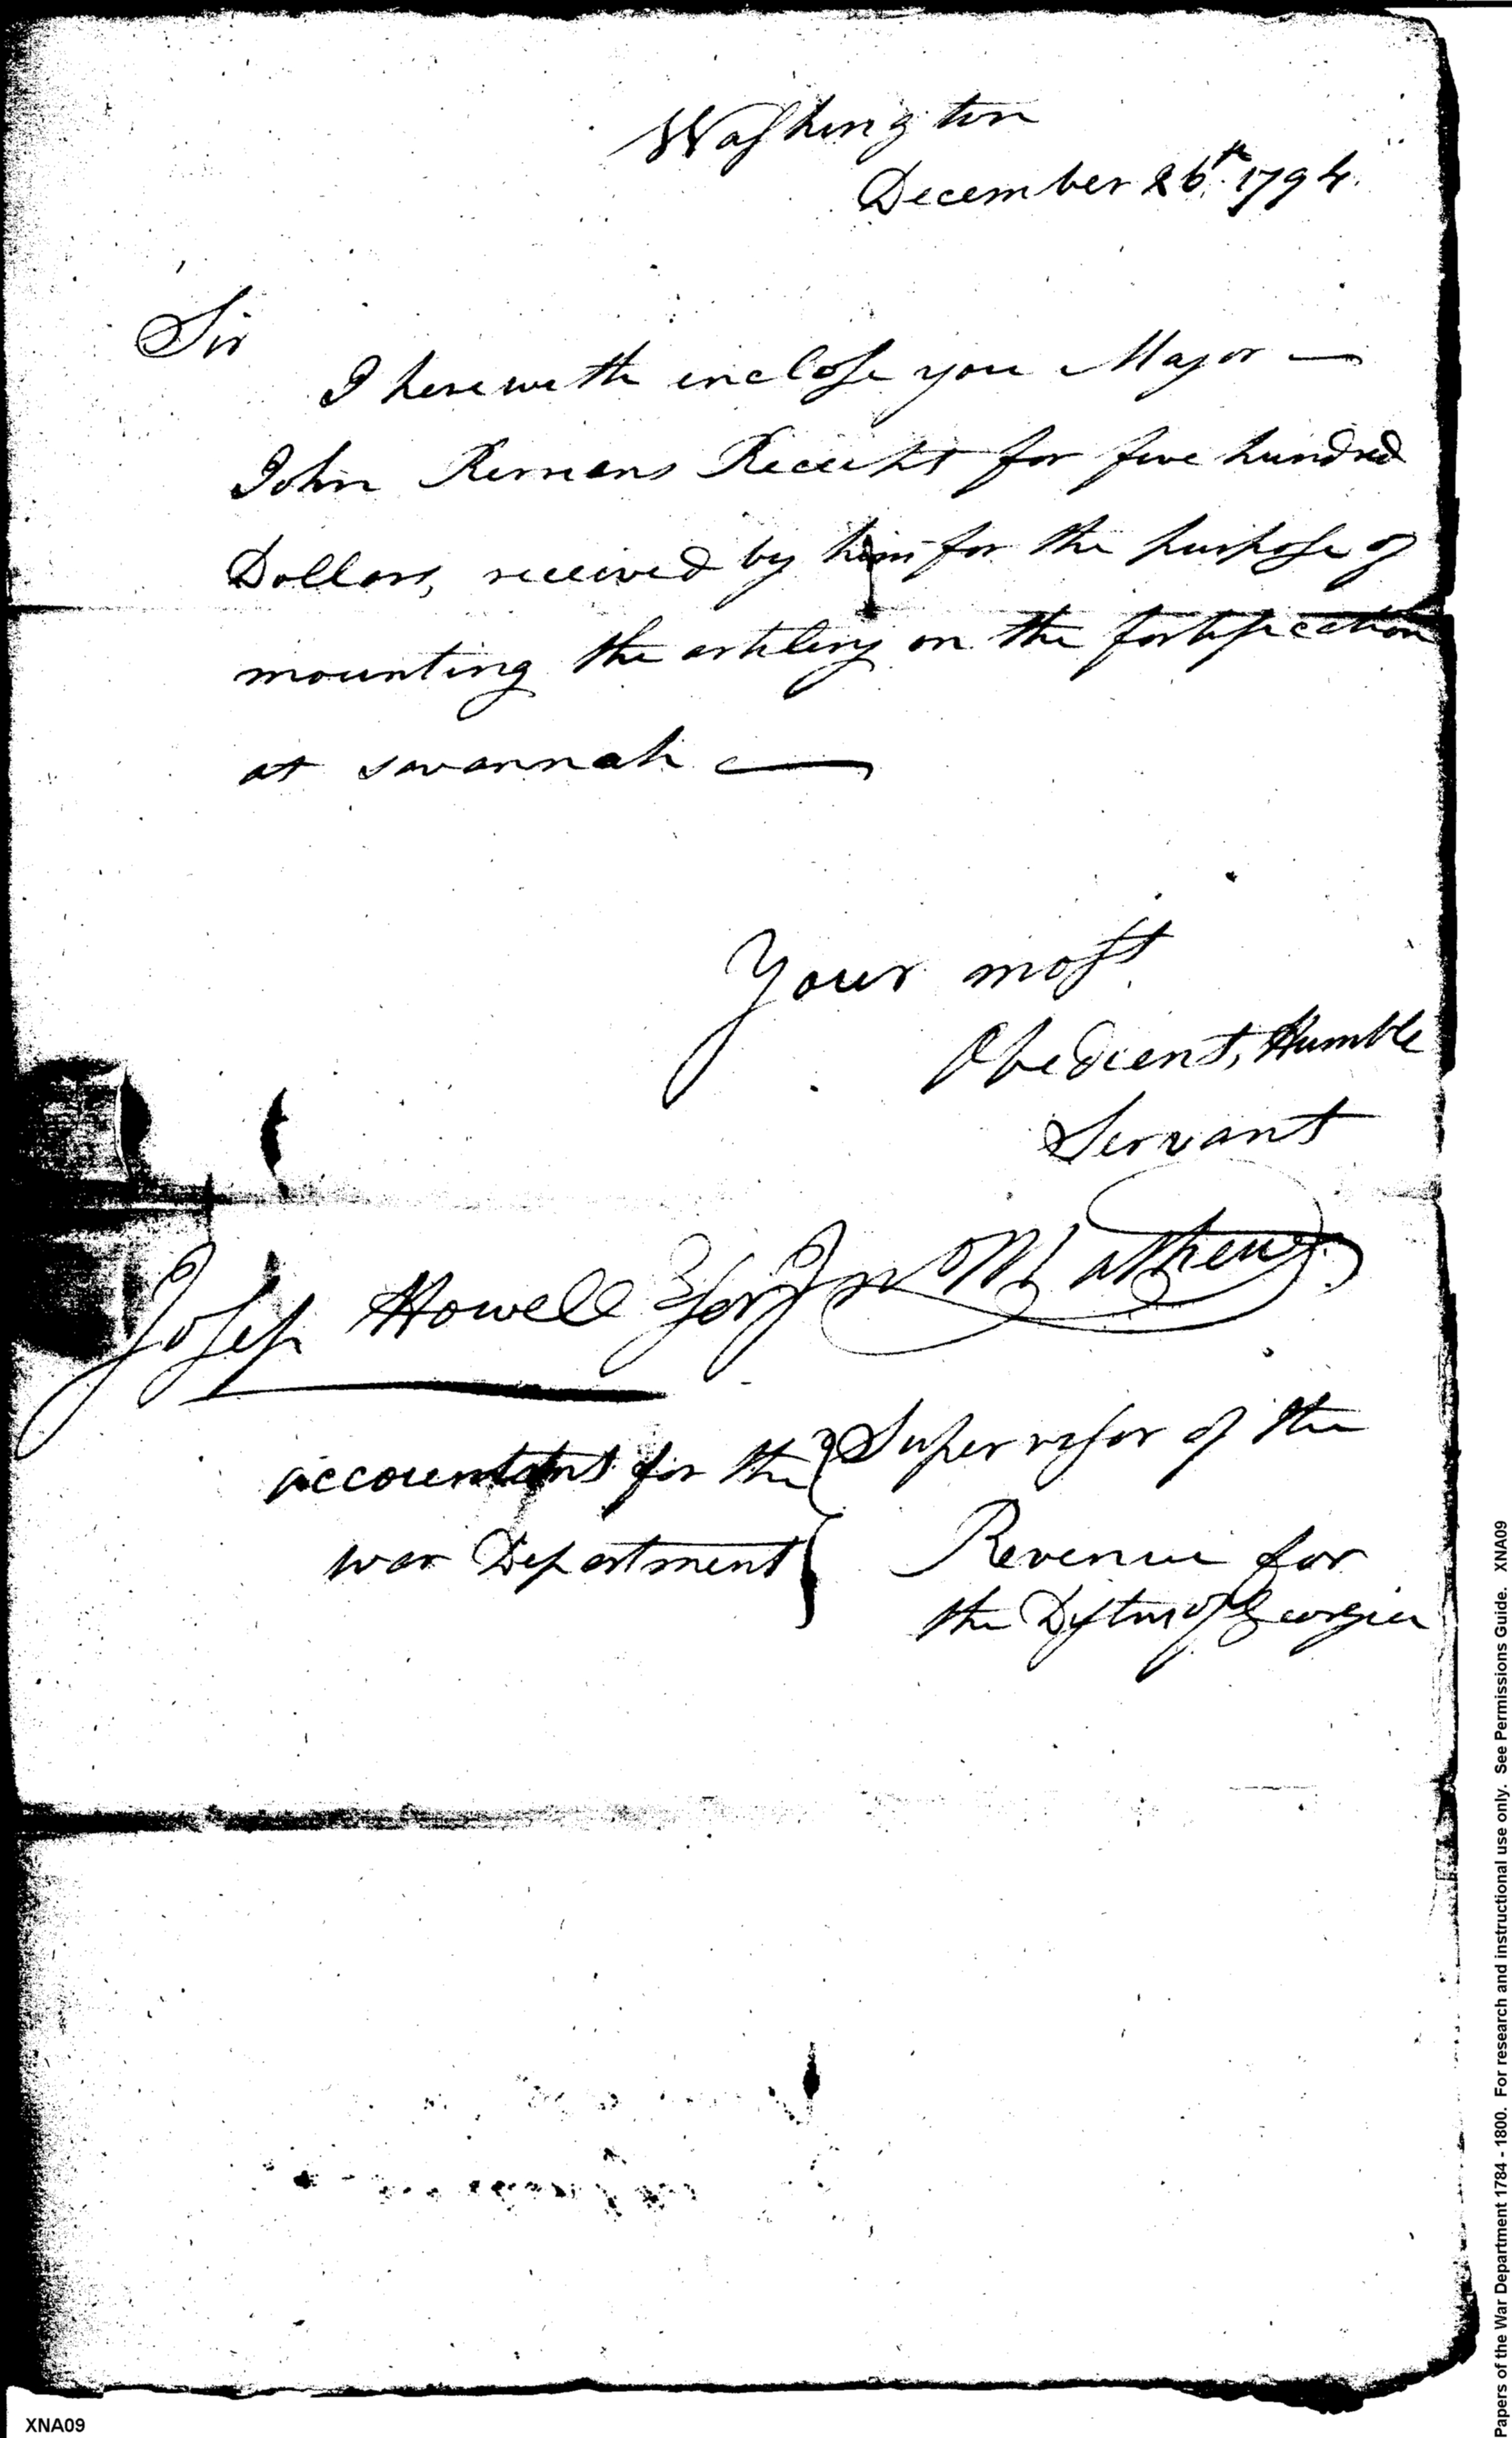 Washington
December 26th 1794.
Sir
I herewith inclose you Major —
John Remans Receipt for five hundred
Dollars, received by him for the purpose of
mounting the artilery on the fortification
at savannah —
Your most
Obedient, Humble
Servant
Josep Howell Esqr Jno Mathews
accountant for the Supervisor of the
war Department Revenue for
the of Georgia
XNA09
Papers of the War Department 1784 - 1800. For research and instructional use only. See Permissions Guide. XNA09